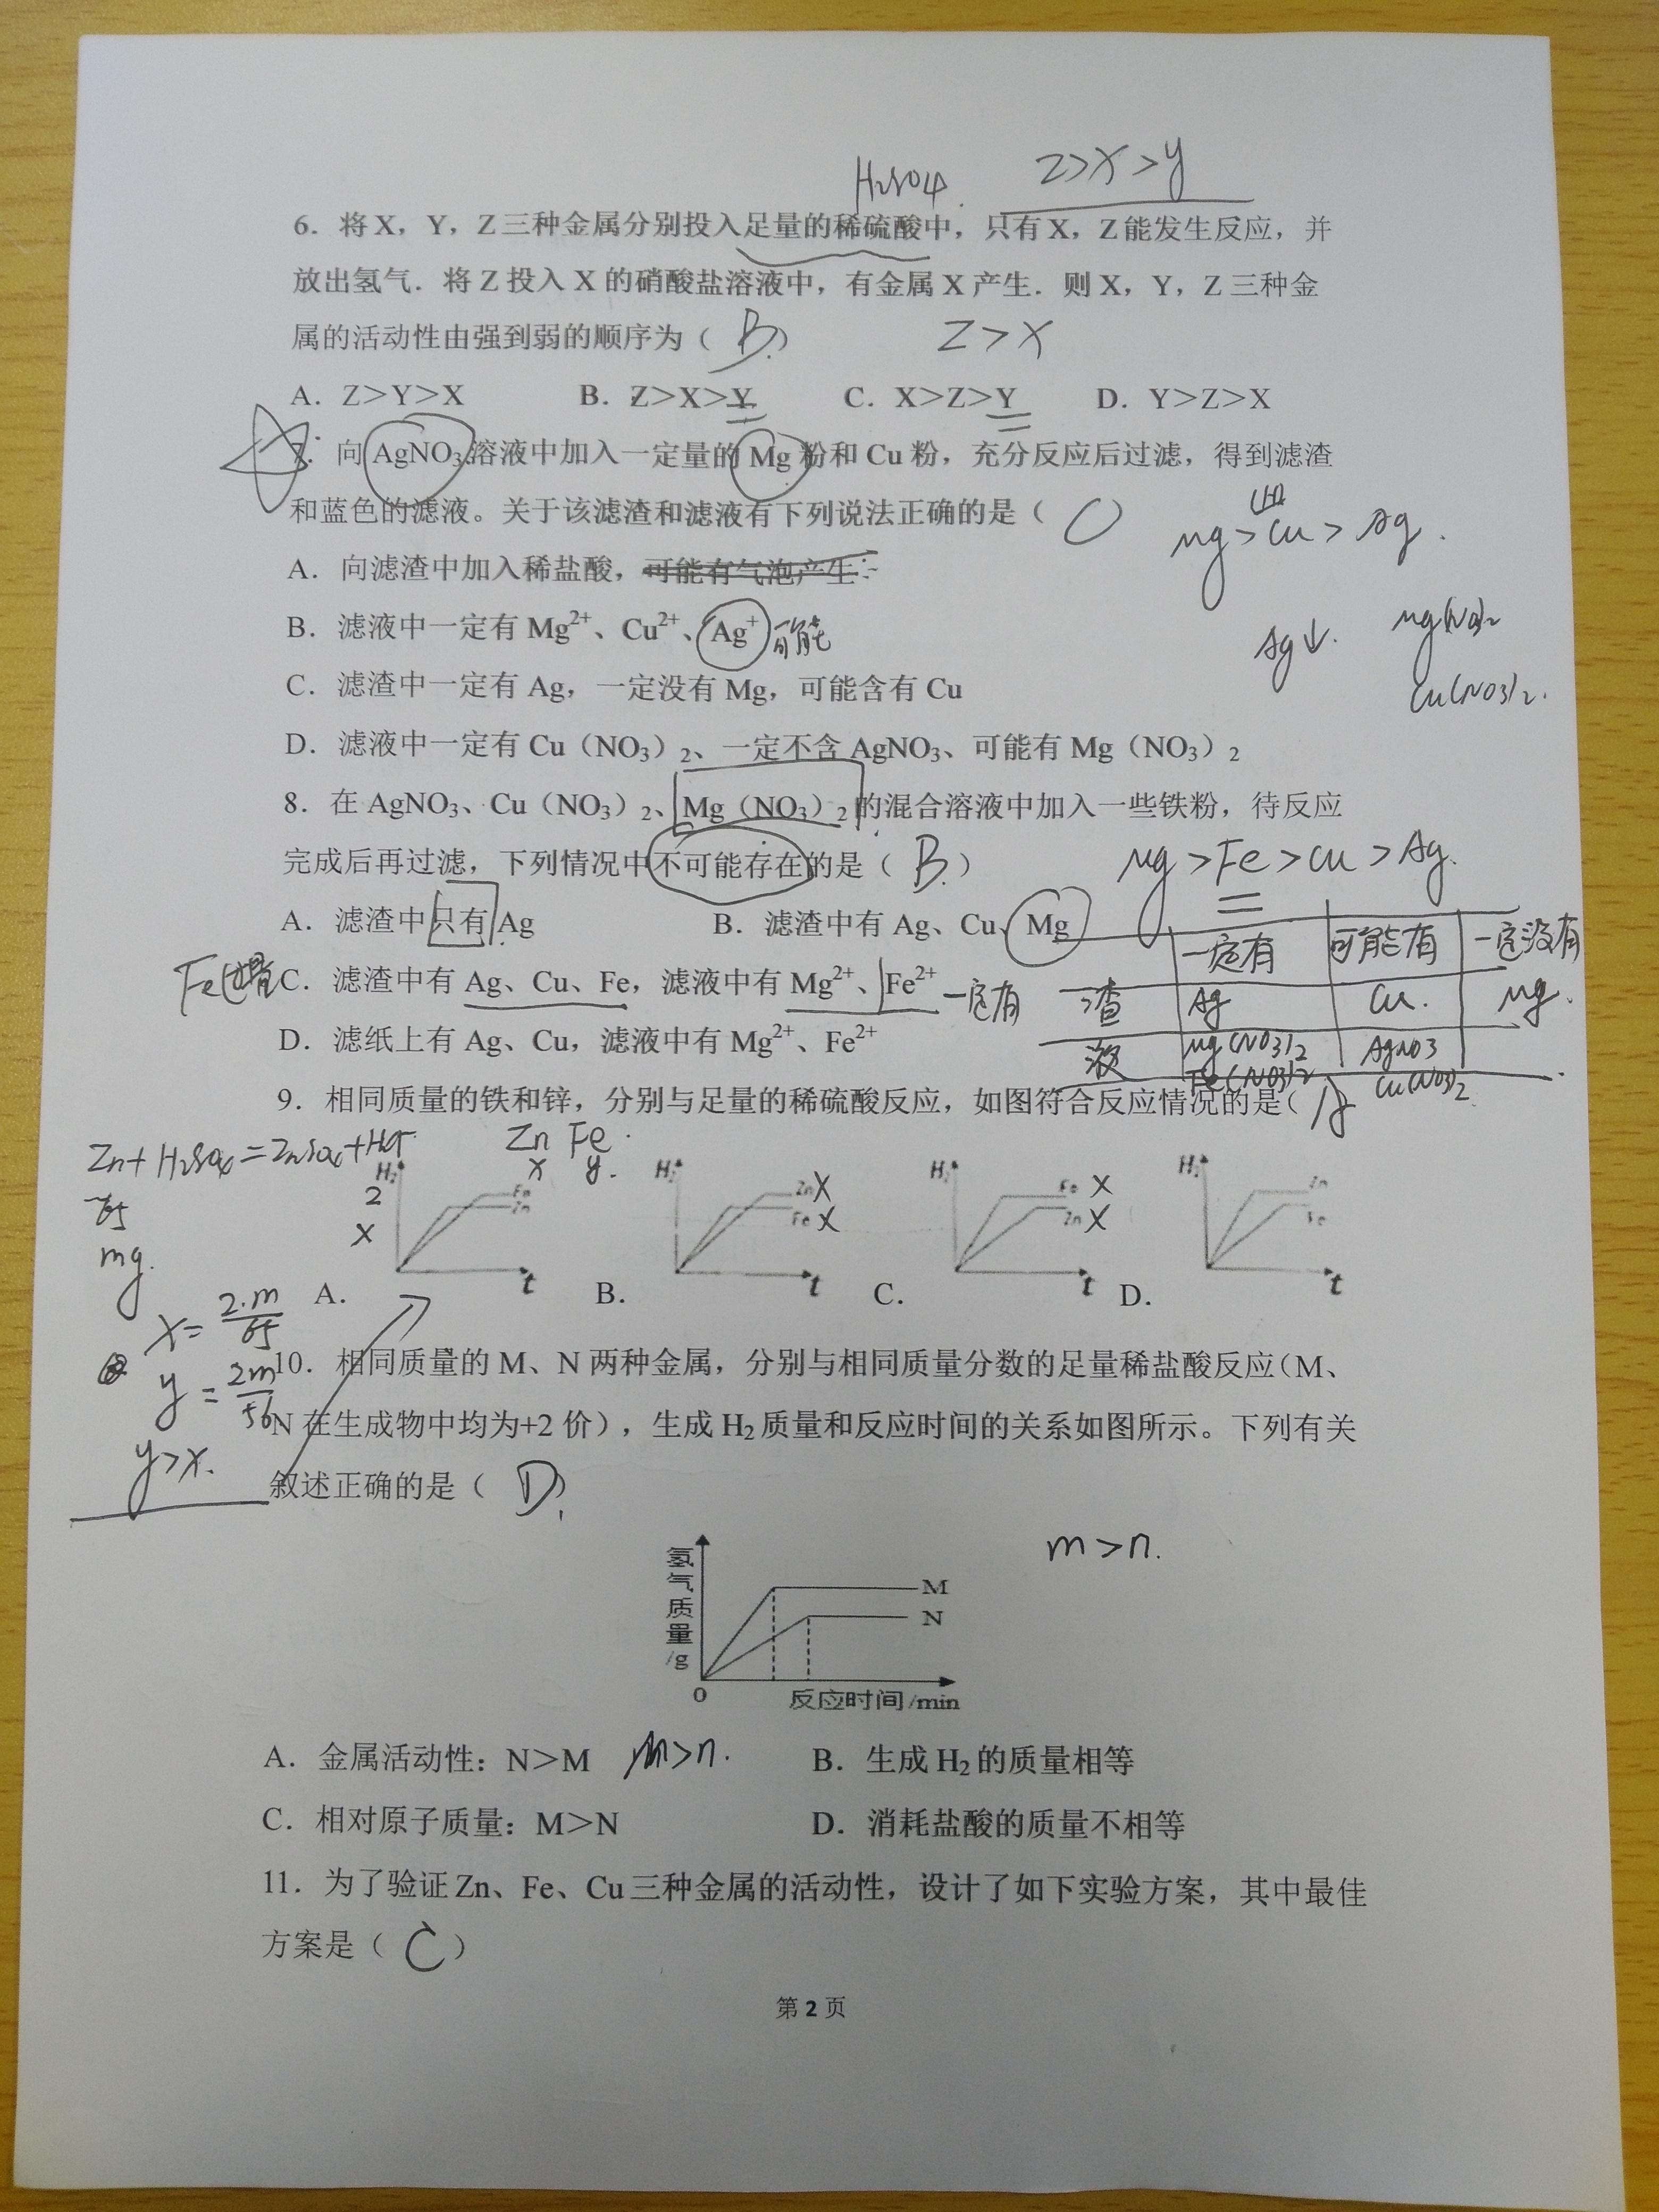 H₂SO₄ Z>X>Y
6. 将X，Y，Z三种金属分别投入足量的稀硫酸中，只有X，Z能发生反应，并
放出氢气．将Z投入X的硝酸盐溶液中，有金属X产生．则X，Y，Z三种金
属的活动性由强到弱的顺序为（ B ） Z>X
A. Z>Y>X B. Z>X>Y C. X>Z>Y D. Y>Z>X
7. 向AgNO₃溶液中加入一定量的Mg粉和Cu粉，充分反应后过滤，得到滤渣
和蓝色的滤液。关于该滤渣和滤液有下列说法正确的是（ C
mg>Cu>Ag.
A. 向滤渣中加入稀盐酸，可能有气泡产生
B. 滤液中一定有Mg²⁺、Cu²⁺、Ag⁺ 可能
Ag↓. mg(NO₃)₂
C. 滤渣中一定有Ag，一定没有Mg，可能含有Cu
Cu(NO₃)₂.
D. 滤液中一定有Cu（NO₃）₂、一定不含AgNO₃、可能有Mg（NO₃）₂
8. 在AgNO₃、Cu（NO₃）₂、Mg（NO₃）₂的混合溶液中加入一些铁粉，待反应
完成后再过滤，下列情况中不可能存在的是（ B ） mg>Fe>Cu>Ag.
A. 滤渣中只有Ag B. 滤渣中有Ag、Cu、Mg
一定有 可能有 一定没有
Fe过量 C. 滤渣中有Ag、Cu、Fe，滤液中有Mg²⁺、Fe²⁺ 一定有
渣 Ag Cu. mg.
D. 滤纸上有Ag、Cu，滤液中有Mg²⁺、Fe²⁺
液 mg(NO₃)₂ AgNO₃
Fe(NO₃)₂ Cu(NO₃)₂
9. 相同质量的铁和锌，分别与足量的稀硫酸反应，如图符合反应情况的是（ A
Zn+H₂SO₄=ZnSO₄+H₂↑ Zn Fe
x y.
H₂ Fe Zn t
H₂ Zn X Fe X t
H₂ Fe X Zn X t
H₂ Zn Fe t
65 2
mg. X
A. B. C. D.
x=2·m/65
10. 相同质量的M、N两种金属，分别与相同质量分数的足量稀盐酸反应（M、
y=2m/56
N在生成物中均为+2价），生成H₂质量和反应时间的关系如图所示。下列有关
y>x.
叙述正确的是（ D ）
m>n.
氢气质量/g
M
N
0 反应时间/min
A. 金属活动性：N>M m>n. B. 生成H₂的质量相等
C. 相对原子质量：M>N D. 消耗盐酸的质量不相等
11. 为了验证Zn、Fe、Cu三种金属的活动性，设计了如下实验方案，其中最佳
方案是（ C ）
第 2 页